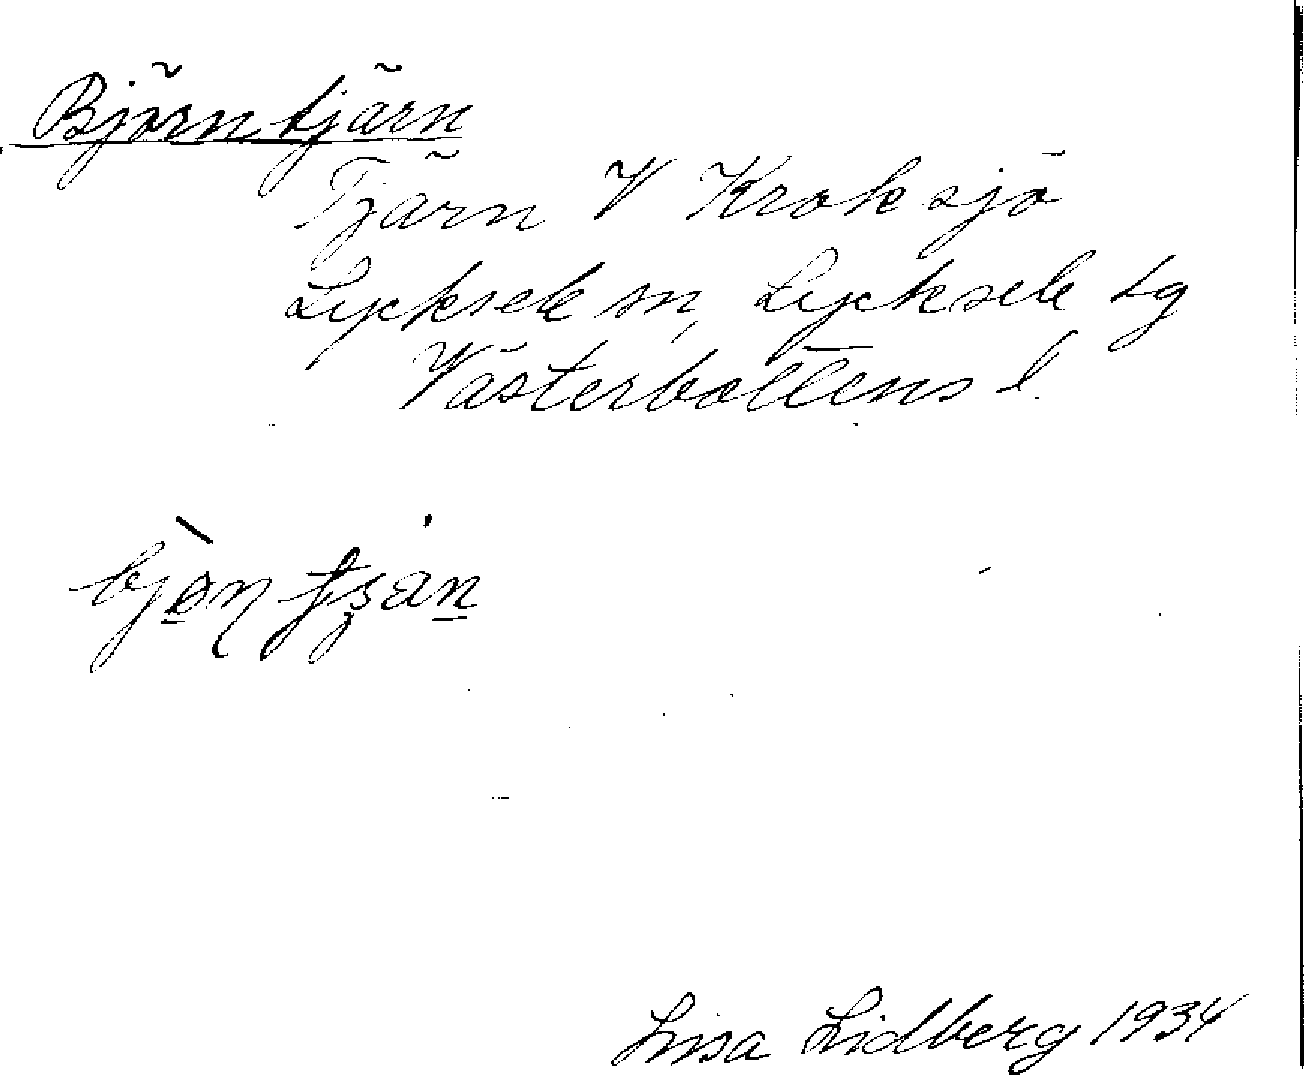 Björntjärn
Tjärn V Kroksjö
Lycksele sn, Lycksele tg
Västerbottens l.
Lisa Lidberg 1934